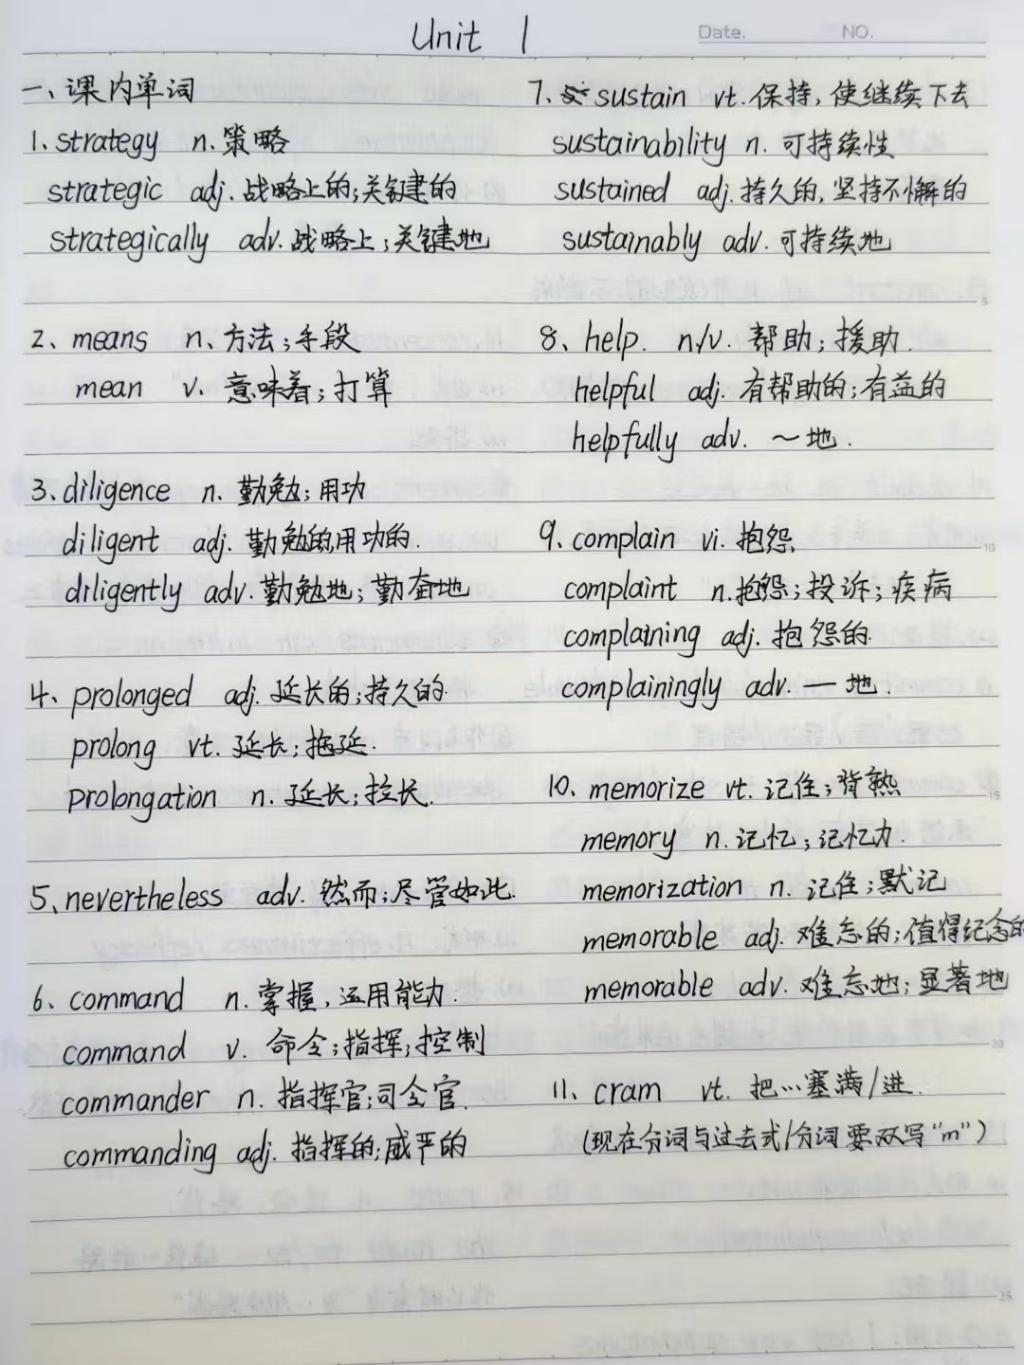 Unit 1
Date.
NO.
一、课内单词
1. strategy n. 策略
strategic adj. 战略上的;关键的
strategically adv. 战略上;关键地
2. means n、方法;手段
mean v. 意味着;打算
3. diligence n. 勤勉;用功
diligent adj. 勤勉的,用功的.
diligently adv. 勤勉地;勤奋地
4、prolonged adj. 延长的;持久的.
prolong vt. 延长;拖延.
prolongation n. 延长;拉长.
5、nevertheless adv. 然而;尽管如此.
6、command n. 掌握,运用能力.
command v. 命令;指挥;控制
commander n. 指挥官;司令官.
commanding adj. 指挥的;威严的
7. sustain vt. 保持,使继续下去
sustainability n. 可持续性
sustained adj. 持久的,坚持不懈的
sustainably adv. 可持续地
5
8、help. n/v. 帮助;援助.
helpful adj. 有帮助的;有益的
helpfully adv. ～地.
9、complain vi. 抱怨
10
complaint n. 抱怨;投诉;疾病
complaining adj. 抱怨的.
complainingly adv. 一地.
10、memorize vt. 记住;背熟
15
memory n. 记忆;记忆力.
memorization n. 记住;默记
memorable adj. 难忘的;值得纪念的
memorable adv. 难忘地;显著地
20
11、cram vt. 把…塞满/进.
(现在分词与过去式/分词要双写"m")
25